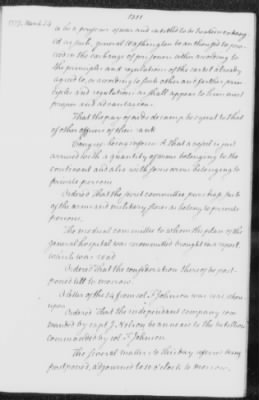 1211
1777, March 24
to be a prisoner of war and entitled to be treated & exchang
ed as such, general Washington be authorized to pro-
ceed in the exchange of prisoners either according to
the principles and regulations of the cartel already
agreed to, or according to such other and further prin-
ciples and regulations as shall appear to him most
proper and advantageous.
That the pay of aids de camp be equal to that
of other officers of their rank
Congress being informed that a vessel is just
arrived with a quantity of arms belonging to the
continent and also with some arms belonging to
private persons
Ordered that the secret committee purchase such
of the arms and military stores as belong to private
persons.
The medical committee to whom the plan of the
general hospital was recommitted brought in a report
which was read
Ordered that the consideration thereof be post-
poned till to morrow
A letter of the 14 from col. J. Johnson was read where
upon
Ordered that the independent company com
manded by capt J. Nelson be annexed to the batallion
commanded by col. J. Johnson
The several matters to this day referred being
postponed, adjourned to 10 o'clock to morrow.